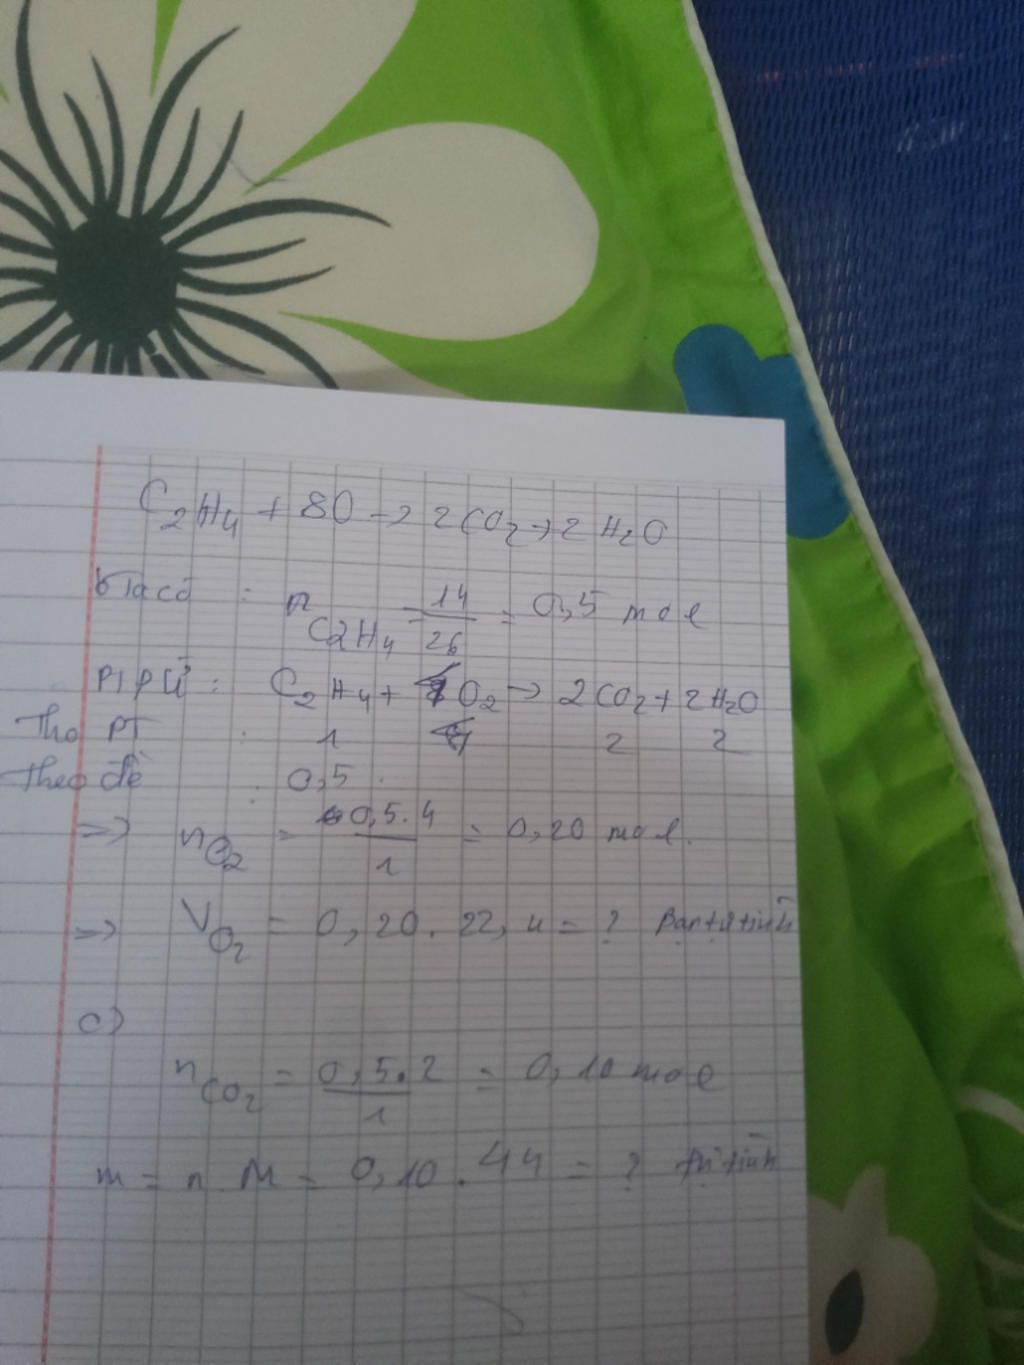 C2H4 + 8O → 2CO2 + 2H2O
b Ta có : n C2H4 = 14/26 = 0,5 mol
PTPƯ : C2H4 + O2 → 2CO2 + 2H2O
Tho PT : 1 2 2
Theo đề : 0,5
=> nO2 = 0,5.4/1 = 0,20 mol.
=> VO2 = 0,20 . 22,4 = ? Bạn tự tính
c)
nCO2 = 0,5.2/1 = 0,10 mol
m = n M = 0,10 . 44 = ? tự tính